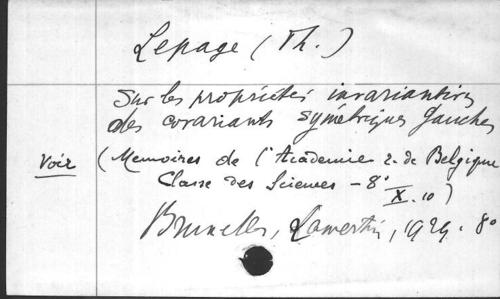 Lepage (Th.)
Sur les propriétés invariantives
des covariants symétriques gauches
Voir (Memoires de l'Académie r. de Belgique
Classe des Sciences - 8°
X. 10)
Bruxelles, Lamertin, 1929. 8°